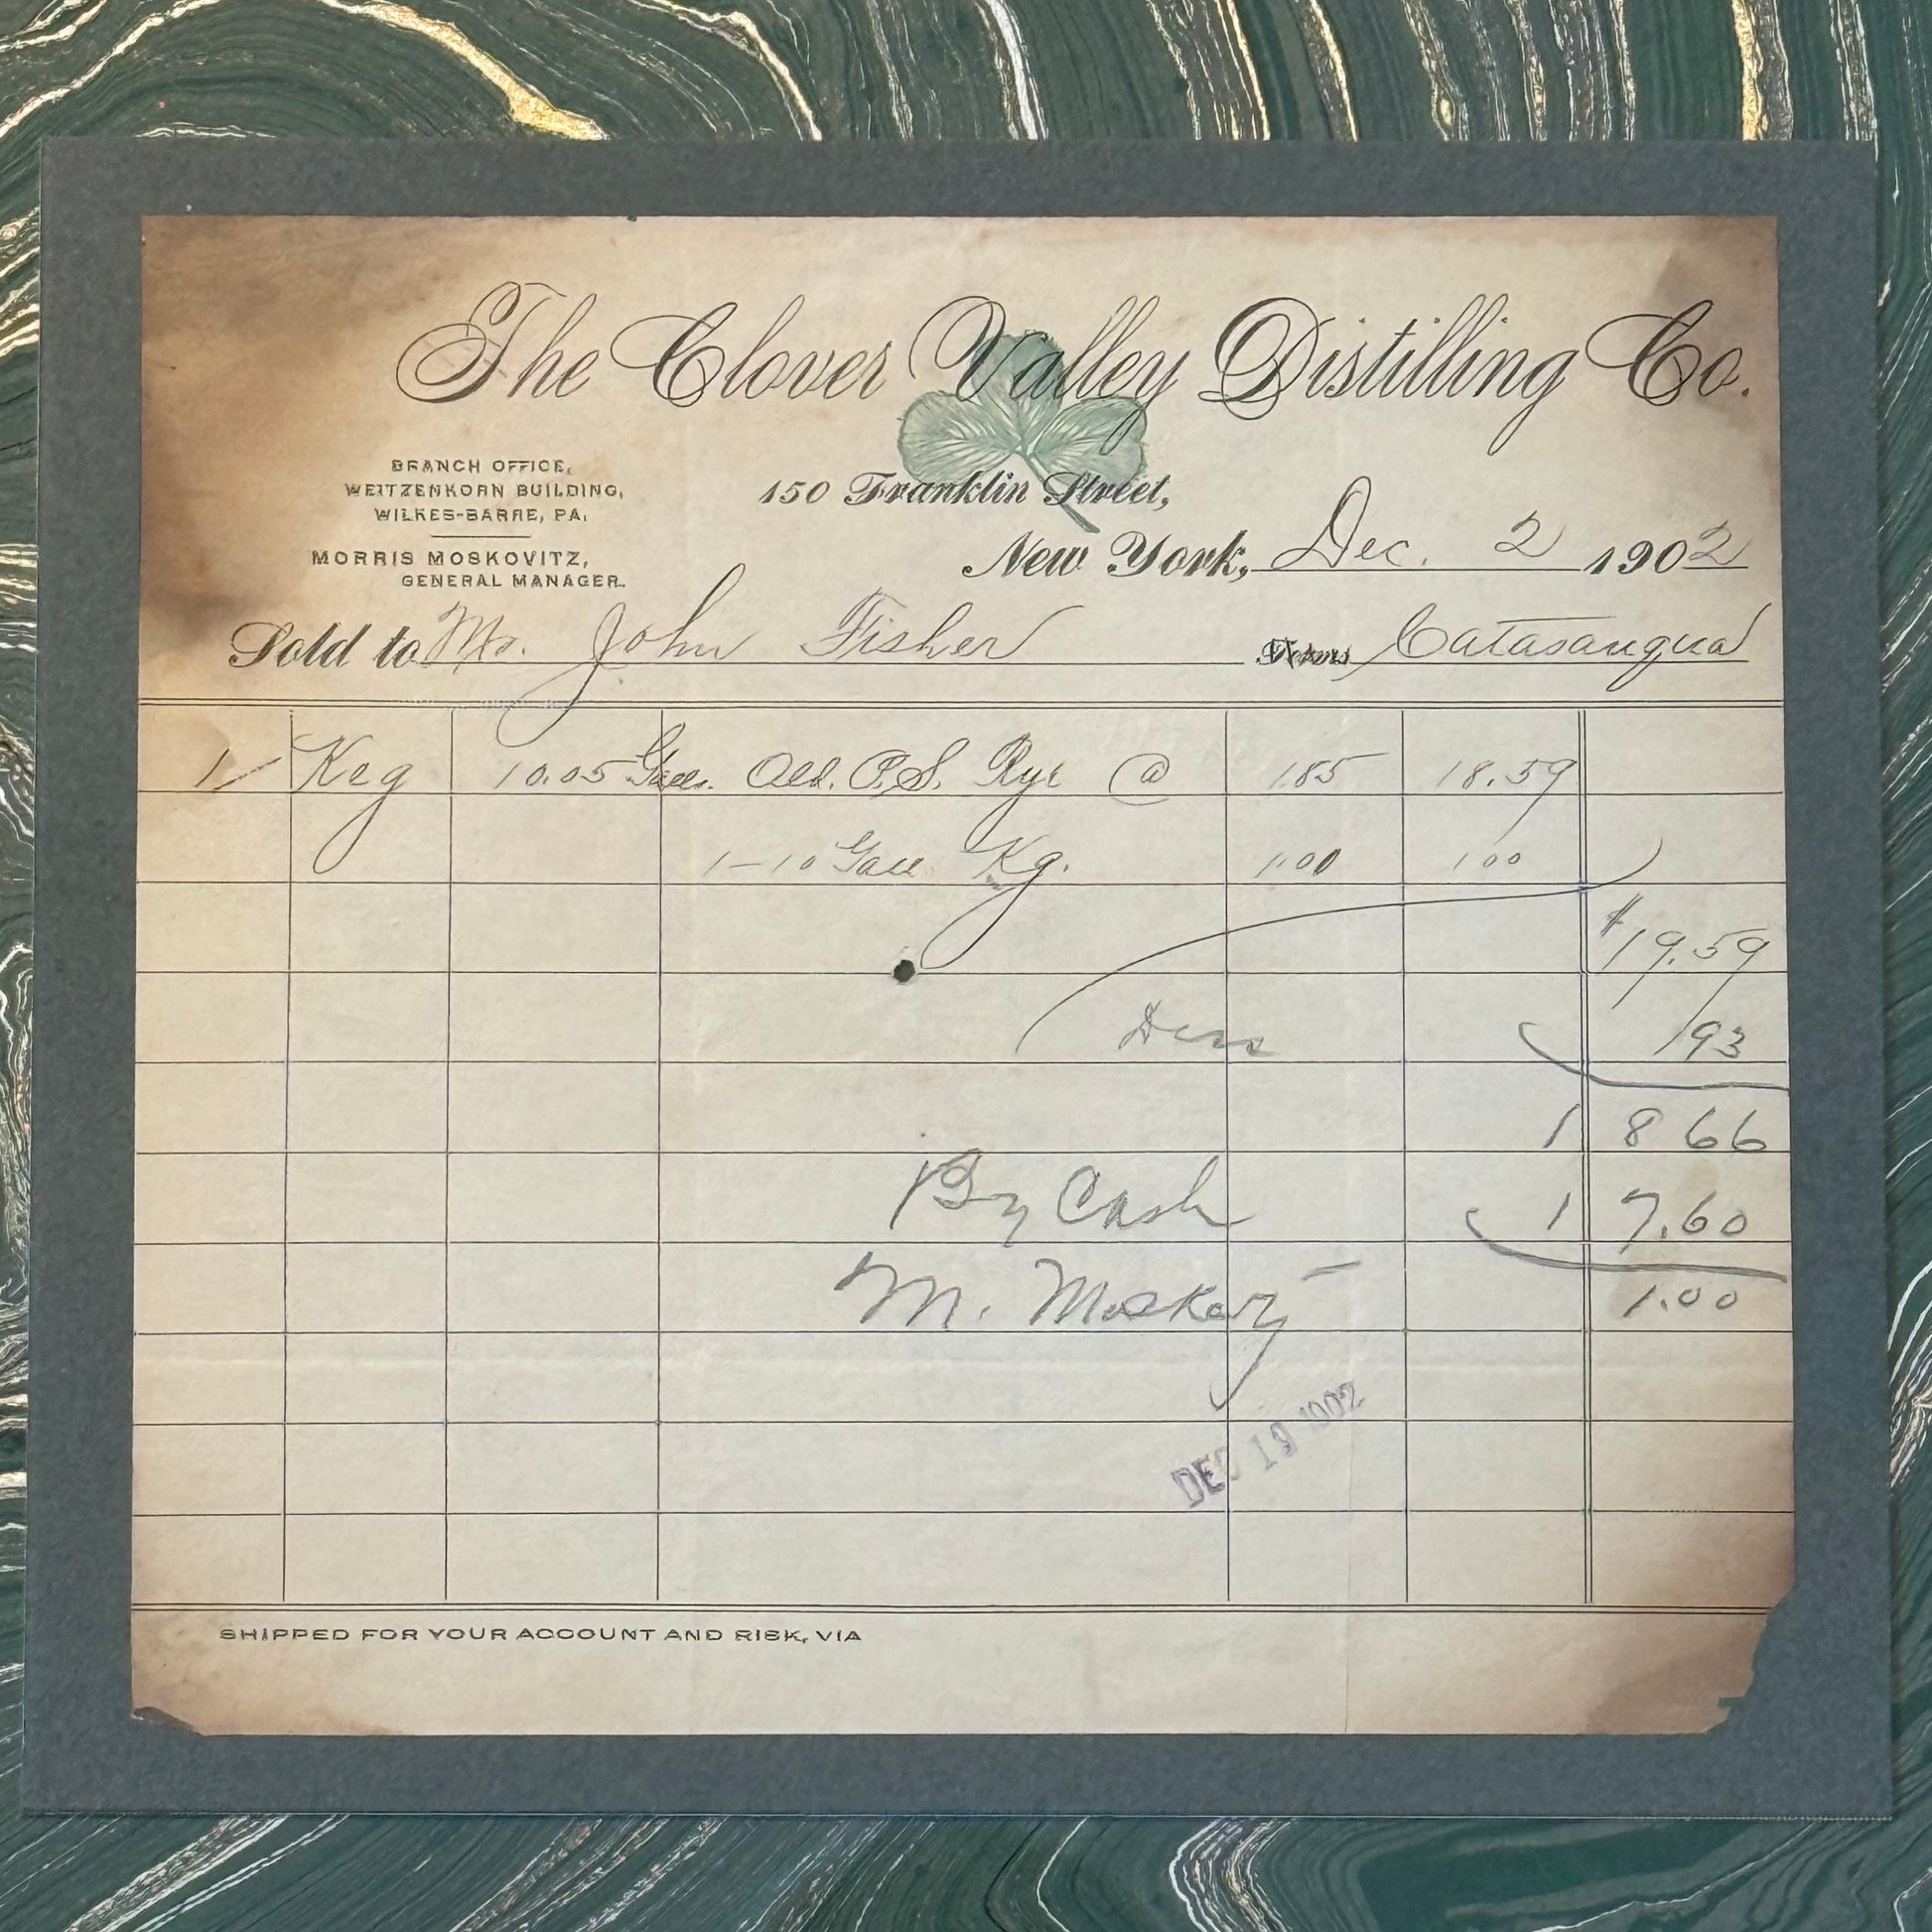 The Clover Valley Distilling Co.
BRANCH OFFICE,
WEITZENKORN BUILDING,
WILKES-BARRE, PA.
MORRIS MOSKOVITZ,
GENERAL MANAGER.
150 Franklin Street,
New York, Dec. 2 1902
Sold to Mr. John Fisher Catasauqua
1 Keg 10.05 Galls. Old. P.S. Rye @ 1.85 18.59
1-10 Gall Kg. 1.00 1 00
$19.59
93
18 66
By Cash 17.60
M. 1.00
DEC 19 1902
SHIPPED FOR YOUR ACCOUNT AND RISK, VIA